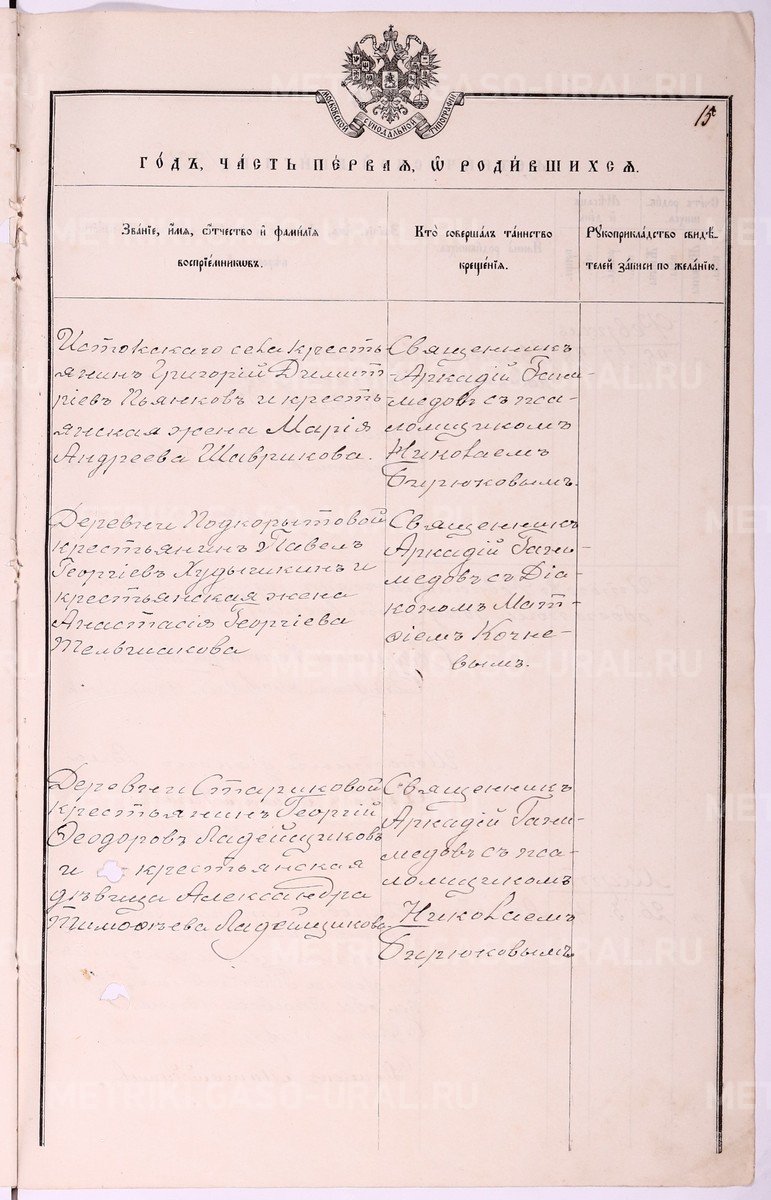 METRIKI.GASO-URAL.RU
МОСКОВСКОЙ СѴНОДАЛЬНОЙ ТИПОГРАФІИ
15
ГОДЪ, ЧАСТЬ ПЕРВАЯ, Ѡ РОДИВШИХСЯ.
Званїе, имя, отчество и фамилїя
воспрїемниковъ.
Кто совершалъ таинство
крещенїя.
Рукоприкладство свидѣ-
телей записи по желанїю.
Истокскаго села кресть-
янинъ Григорій Димит-
ріевъ Пьянковъ и кресть-
янская жена Марія
Андреева Шаврикова.
Священникъ
Аркадій Гани-
медовъ съ пса-
ломщикомъ
Николаемъ
Бирюковымъ.
Деревни Подкорытовой
крестьянинъ Павелъ
Георгіевъ Худышкинъ и
крестьянская жена
Анастасія Георгіева
Священникъ
Аркадій Гани-
медовъ съ Діа-
кономъ Мат-
ѳіемъ Кочне-
вымъ.
Деревни Стариковой
крестьянинъ Георгій
Ѳеодоровъ Ладейщиковъ
и крестьянская
дѣвица Александра
Тимоѳеева Ладейщикова
Священникъ
Аркадій Гани-
медовъ съ пса-
ломщикомъ
Николаемъ
Бирюковымъ
METRIKI.GASO-URAL.RU
METRIKI.GASO-URAL.RU